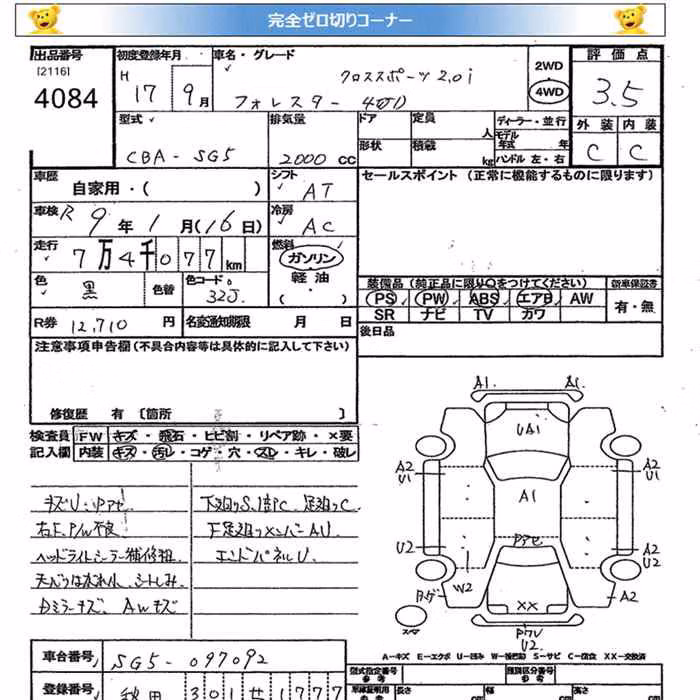 完全ゼロ切りコーナー
出品番号 初度登録年月 車名・グレード 評価点
[2116] H クロススポーツ 2.0i 2WD
4084 17 9月 フォレスター 4WD 4WD 3.5
型式 排気量 ドア 定員 人 ディーラー・並行 外装 内装
CBA-SG5 2000 cc 形状 積載 kg モデル年式 年 ハンドル 左・右 C C
車歴 自家用・( ) シフト AT セールスポイント (正常に機能するものに限ります)
車検 R 9年 1月(16日) 冷房 AC
走行 7万4千077km 燃料 ガソリン
軽油
( )
色 黒 色替 色コード 32J
装備品 (純正品に限り○をつけてください) 新車保証書
PS PW ABS エアB AW 有・無
SR ナビ TV カワ
R券 12,710 円 名変通知期限 月 日 後日品
注意事項申告欄 (不具合内容等は具体的に記入して下さい)
修復歴 有 [箇所 ]
検査員 FW キズ・飛石・ヒビ割・リペア跡・×要
記入欄 内装 キズ・汚レ・コゲ・穴・スレ・キレ・破レ
キズU 下廻りS 足廻りC
右F.P/W不良 下足廻りメンバーAU
ヘッドライト エンドパネルU
シートしみ
Dミラーキズ AWキズ
A1
UA1
A2
U1
A1
A2
U1
U2
アセ
A2
U2
W2
A2
XX
スペア
U2
A-キズ E-エクボ U-凹み W-補修跡 S-サビ C-腐食 XX-交換済
車台番号 SG5-097092
型式指定番号 参考 類別区分番号 参考
登録番号 秋田 301 せ 1777 車検証明用 参考 長さ 幅 高さ